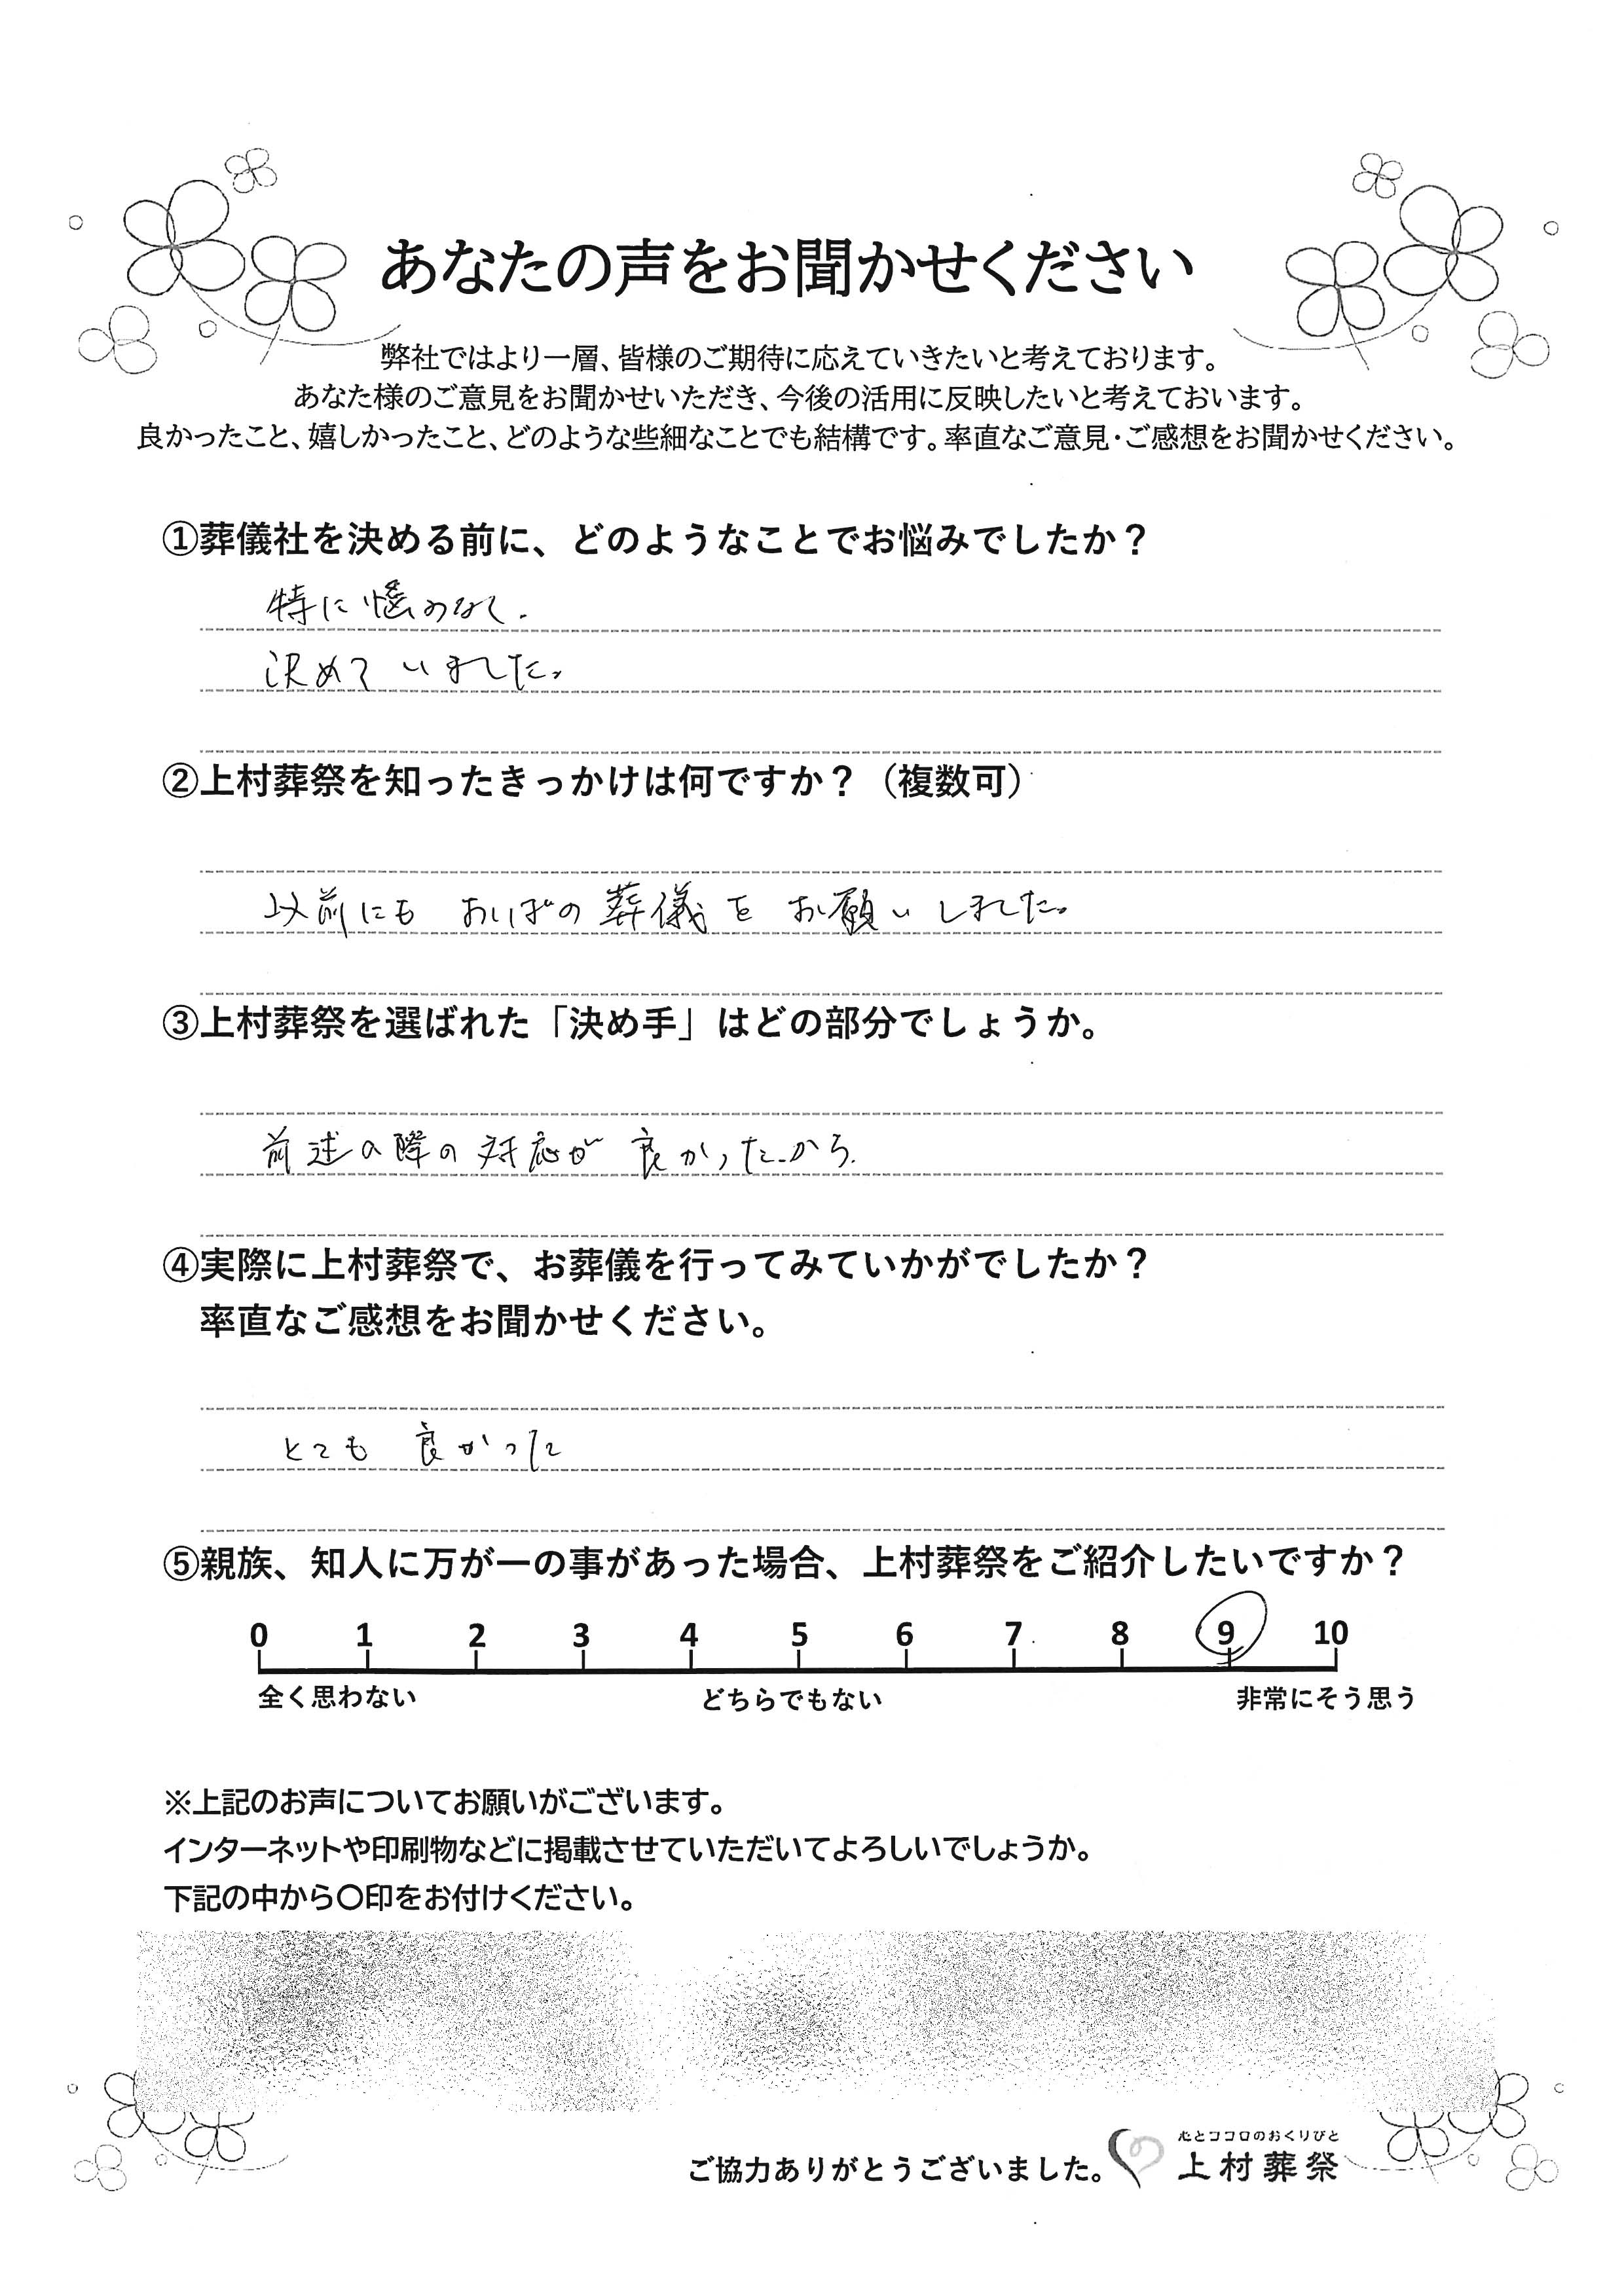 あなたの声をお聞かせください
弊社ではより一層、皆様のご期待に応えていきたいと考えております。
あなた様のご意見をお聞かせいただき、今後の活用に反映したいと考えておいます。
良かったこと、嬉しかったこと、どのような些細なことでも結構です。率直なご意見・ご感想をお聞かせください。
①葬儀社を決める前に、どのようなことでお悩みでしたか？
特に悩みなし.
決めていました。
②上村葬祭を知ったきっかけは何ですか？（複数可）
以前にも おばの葬儀を お願いしました。
③上村葬祭を選ばれた「決め手」はどの部分でしょうか。
前述の際の対応が良かったから.
④実際に上村葬祭で、お葬儀を行ってみていかがでしたか？
率直なご感想をお聞かせください。
とても 良かった
⑤親族、知人に万が一の事があった場合、上村葬祭をご紹介したいですか？
0 1 2 3 4 5 6 7 8 9 10
全く思わない どちらでもない 非常にそう思う
※上記のお声についてお願いがございます。
インターネットや印刷物などに掲載させていただいてよろしいでしょうか。
下記の中から〇印をお付けください。
心とココロのおくりびと
ご協力ありがとうございました。 上村葬祭